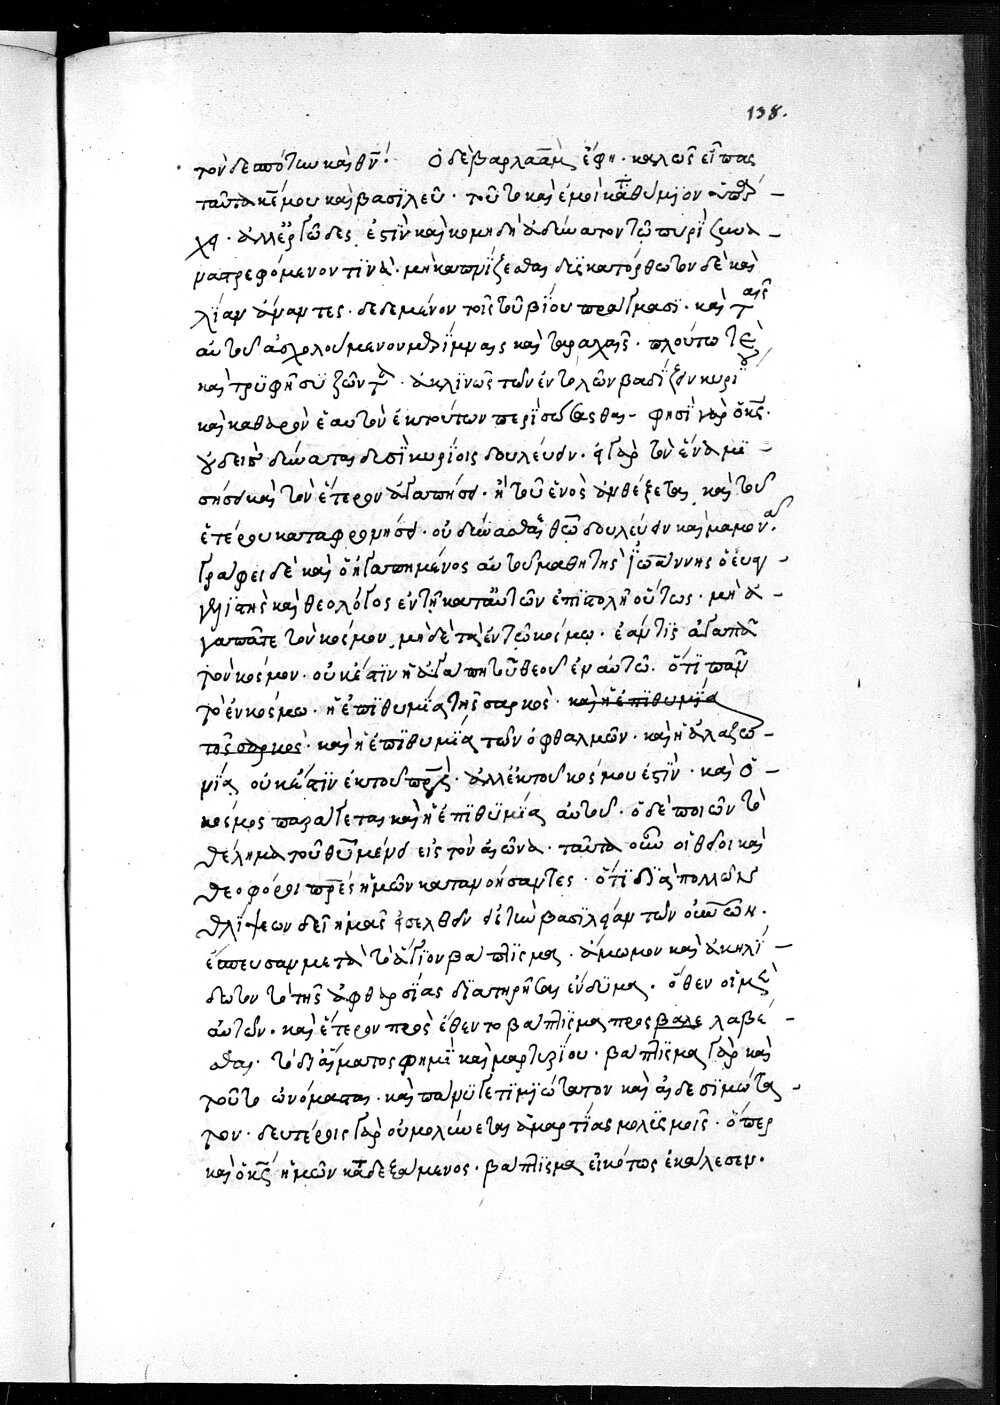 138.
τὸν δεσπότην καὶ θν̄. Ὁ δὲ βαρλαὰμ ἔφη· καλῶς εἶπας
ταῦτα κε̄ μου καὶ βασιλεῦ· τοῦτο καὶ ἐμοὶ καταθύμϊον ὑπάρ-
χει· ἀλλ' ἐργῶδες ἐστὶν καὶ κομηδῆ ἀδύνατον τῶ πυρῒ συνα-
νατρεφόμενον τϊνὰ· μὴ καπνίζεσθαι δυσκατόρθωτον δὲ καὶ
λίαν ἄναντες· δεδεμένον τοῖς τοῦ βίου πράγμασϊ· καὶ ταῖς
αὐτοῦ ἀσχολούμενον μερίμναις καὶ ταραχαῖς· πλούτω τὲ
καὶ τρϋφῆ συζῶντα· ἀκλϊνῶς τῶν ἐντολῶν βαδίζειν κυρίου
καὶ καθαρὸν ἑαυτὸν ἐκ τούτων περισώσασθαι- φησὶ γὰρ ὁ κς̄·
οὐδεὶς δύναται δυσῒ κυρίοις δουλεύειν· ἢ γὰρ τὸν ἕνα μι-
σήσει καὶ τὸν ἕτερον ἀγαπήσει· ἢ τοῦ ἑνὸς ἀνθέξεται καὶ τοῦ
ἑτέρου καταφρονήσει· οὐ δύνασθαι θεῶ δουλεύειν καὶ μαμονᾶ.
Γράφει δὲ καὶ ὁ ἠγαπημένος αὐτοῦ μαθητὴς Ἰωάννης ὁ εὐαγ-
γελιστὴς καὶ θεολόγος ἐν τῆ κατ' αὐτῶν ἐπϊστολῆ οὕτως· μὴ ἀ-
γαπᾶτε τὸν κόσμον, μὴ δὲ τὰ ἐν τῶ κόσμω· ἐάν τϊς ἀγαπᾶ
τὸν κόσμον· οὐκ ἔστϊν ἡ ἀγάπη τοῦ θεοῦ ἐν αὐτῶ. ὅτϊ πᾶν
τὸ ἐν κόσμω· ἡ ἐπϊθυμΐα τῆς σαρκὸς· καὶ ἡ ἐπϊθυμΐα
τῆς σαρκὸς· καὶ ἡ ἐπϊθυμΐα τῶν ὀφθαλμῶν· καὶ ἡ ἀλαζο-
νΐα οὐκ ἔστϊν ἐκ τοῦ πρ̄ς· ἀλλ' ἐκ τοῦ κόσμου ἐστϊν· καὶ ὁ
κόσμος παράγεται καὶ ἡ ἐπϊθϋμΐα αὐτοῦ· ὁ δὲ ποιῶν τὸ
θέλημα τοῦ θῡ μένει εἰς τὸν αἰῶνα· ταῦτα οὖν οἱ θεῖοι καὶ
θεοφόροι πρ̄ες ἡμῶν κατανοήσαντες· ὅτϊ δϊὰ πολλῶν
θλίψεων δεῖ ἡμᾶς εἰσελθεῖν εἰς τὴν βασϊλείαν τῶν οὐνῶν.
ἔσπευσαν μετὰ τὸ ἅγϊον βάπτϊσμα· ἄμωμον καὶ ἀκηλί-
δωτον τὸ τῆς ἀφθαρσίας δϊατηρῆσαι ἔνδϋμα. ὅθεν οἱ μὲν
αὐτῶν· καὶ ἕτερον προσέθεντο βάπτϊσμα προσβαλε λαβέ-
σθαι· τὸ δϊ' αἵματος φημῒ καὶ μαρτυρίου· βάπτϊσμα γὰρ καὶ
τοῦτο ὠνόμασται· καὶ πάνϋ γε τϊμϊώτατον καὶ αἰδεσϊμώτα-
τον· δευτέροις γὰρ οὐ μολύνεται ἁμαρτίας μολϋσμοῖς· ὅπερ
καὶ ὁ κς̄ ἡμῶν καταδεξάμενος· βάπτϊσμα εἰκότως ἐκάλεσεν.